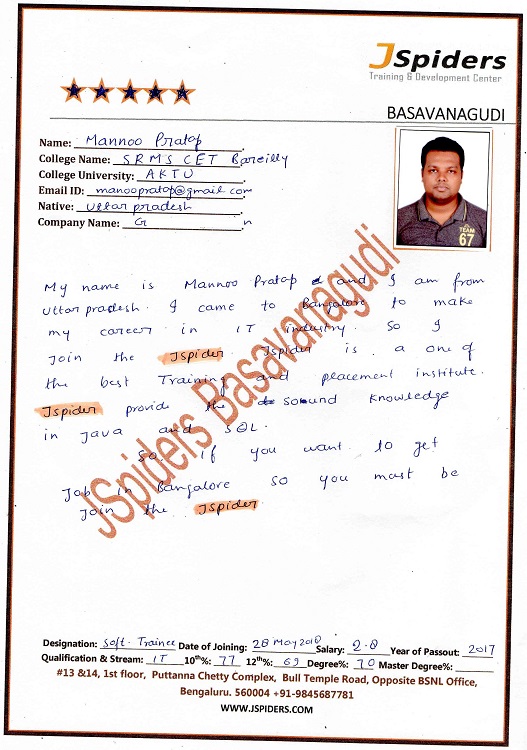 JSpiders
Training & Development Center
BASAVANAGUDI
Name: Mannoo Pratap
College Name: SRMS CET Bareilly
College University: AKTU
Email ID: manoopratap@gmail.com
Native: Uttar pradesh
Company Name: G n
TEAM
67
My name is Mannoo Pratap and I am from
Uttar pradesh. I came to Bangalore to make
my career in IT industry. So I
Join the Jspider. Jspider is a one of
the best Training and placement institute.
Jspider provide the sound knowledge
in java and SQL.
So, if you want to get
Job in Bangalore so you must be
join the Jspider.
JSpiders Basavanagudi
Designation: Soft. Trainee Date of Joining: 28 May 2018 Salary: 2.8 Year of Passout: 2017
Qualification & Stream: IT 10th%: 77 12th%: 69 Degree%: 70 Master Degree%:
#13 &14, 1st floor, Puttanna Chetty Complex, Bull Temple Road, Opposite BSNL Office,
Bengaluru. 560004 +91-9845687781
WWW.JSPIDERS.COM